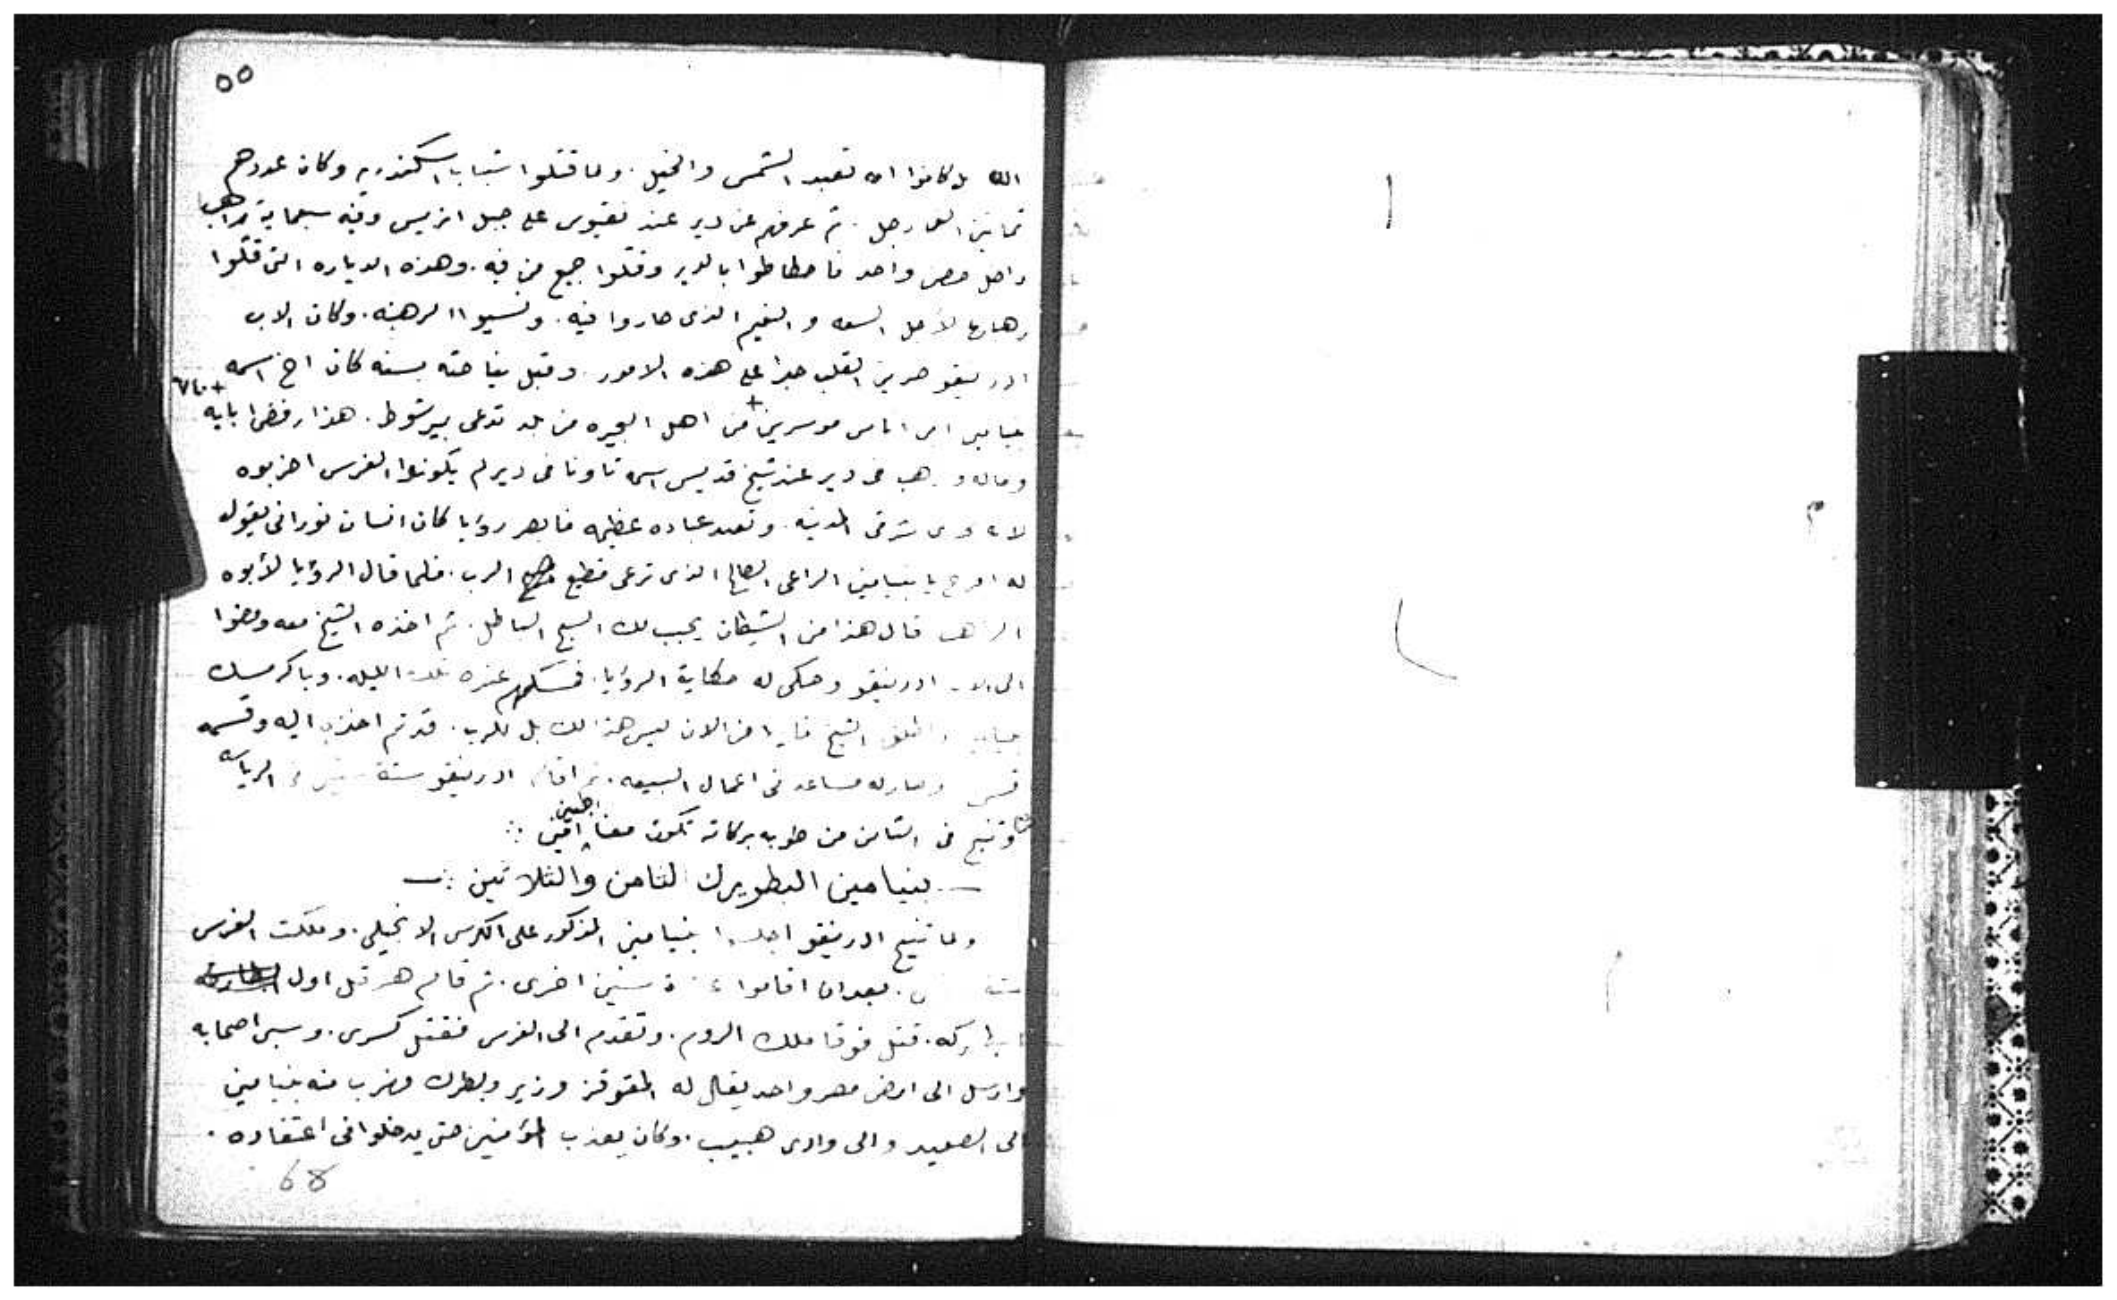 ٥٥
الله بل كانوا امه تعبد الشمس والخيل. ولما قتلوا شباب اسكندريه وكان عددهم
ثمانين الف رجل. ثم عرفهم عن دير عند نقيوس على جبل انريس وفيه سبعماية راهب
داخل حصن واحد فاحطاطوا بالدير وقتلوا جميع من فيه. وهذه الدياره التى قتلوا
رهبانها لأجل السعه و النعيم الذى صاروا فيه. ونسيوا الرهبنه. وكان الاب
اندرنيقو حزين القلب جدا على هذه الامور. وقبل نياحته بسنه كان اخ اسمه
بنيامين ابن اناس موسرين + من اهل البحيره من بلد تدعى برشوط. هذا رفض ابايه
+ ٧٤٠
وماله و هب فى دير عند شيخ قديس اسمه تاونا فى دير لم يكونوا الفرس اخربوه
لانه فى شرقى المدينه. وتعبد عباده عظيمه فابصر رؤيا كان انسان نورانى يقول
له افرح يا بنيامين الراعى الصالح الذى ترعى قطيع الرب. فلما قال الرؤيا لأبوه
الراهب قال هذا من الشيطان يجيب لك السبح الباطل. ثم اخذه الشيخ معه ومضوا
الى الاب اندرنيقو وحكى له حكاية الرؤيا. فمسكهم عنده تلك الليله. وباكر مسك
بنيامين واطلق الشيخ من الان ليس هذا لك بل للرب. قدتم اخذه اليه وقسمه
قس وصار له مساعد فى اعمال البيعه. ثم اقام اندرنيقو ستة سنين فى الرياسه
وتنيح فى الثامن من طوبه بركاته تكون معنا اجمعين امين
بنيامين البطريرك الثامن والثلاثين
ولما تنيح اندرنيقو اجلسوا بنيامين المذكور على الكرسى الانجيلى. وملكت الفرس
ستة. بعد ان اقاموا سنين اخرى. ثم قام هرقل اول
بطاركه. قتل فوقا ملك الروم. وتقدم الى الفرس فقتل كسرى. وسبى اصحابه
وارسل الى ارض مصر واحد يقال له المقوقز وزير وبطرك فهرب منه بنيامين
الى الصعيد والى وادى هبيب. وكان يعذب المؤمنين حتى يدخلوا فى اعتقاده.
68